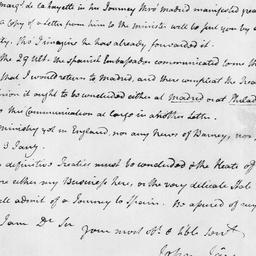 marq.s de la Fayette in his Journey thro' madrid manifested great
a Copy of a Letter from him to the minister will be sent you by
ty. Tho I imagine he has already forwarded it.
The 29 Ult. the Spanish Embassador communicated to me the
that I would return to Madrid, and there compleat the Trea
nion it ought to be concluded either at Madrid or at Philad
the Communication at large in another Letter.
ministry yet in England, nor any News of Barney, nor
3 Jany.
definitive Treaties must be concluded & the Heats of
ore either my Business here, or the very delicate State
ll admit of a Journey to Spain. Be assured of my
I am Dr Sir your most ob. & hble Servt
John Jay